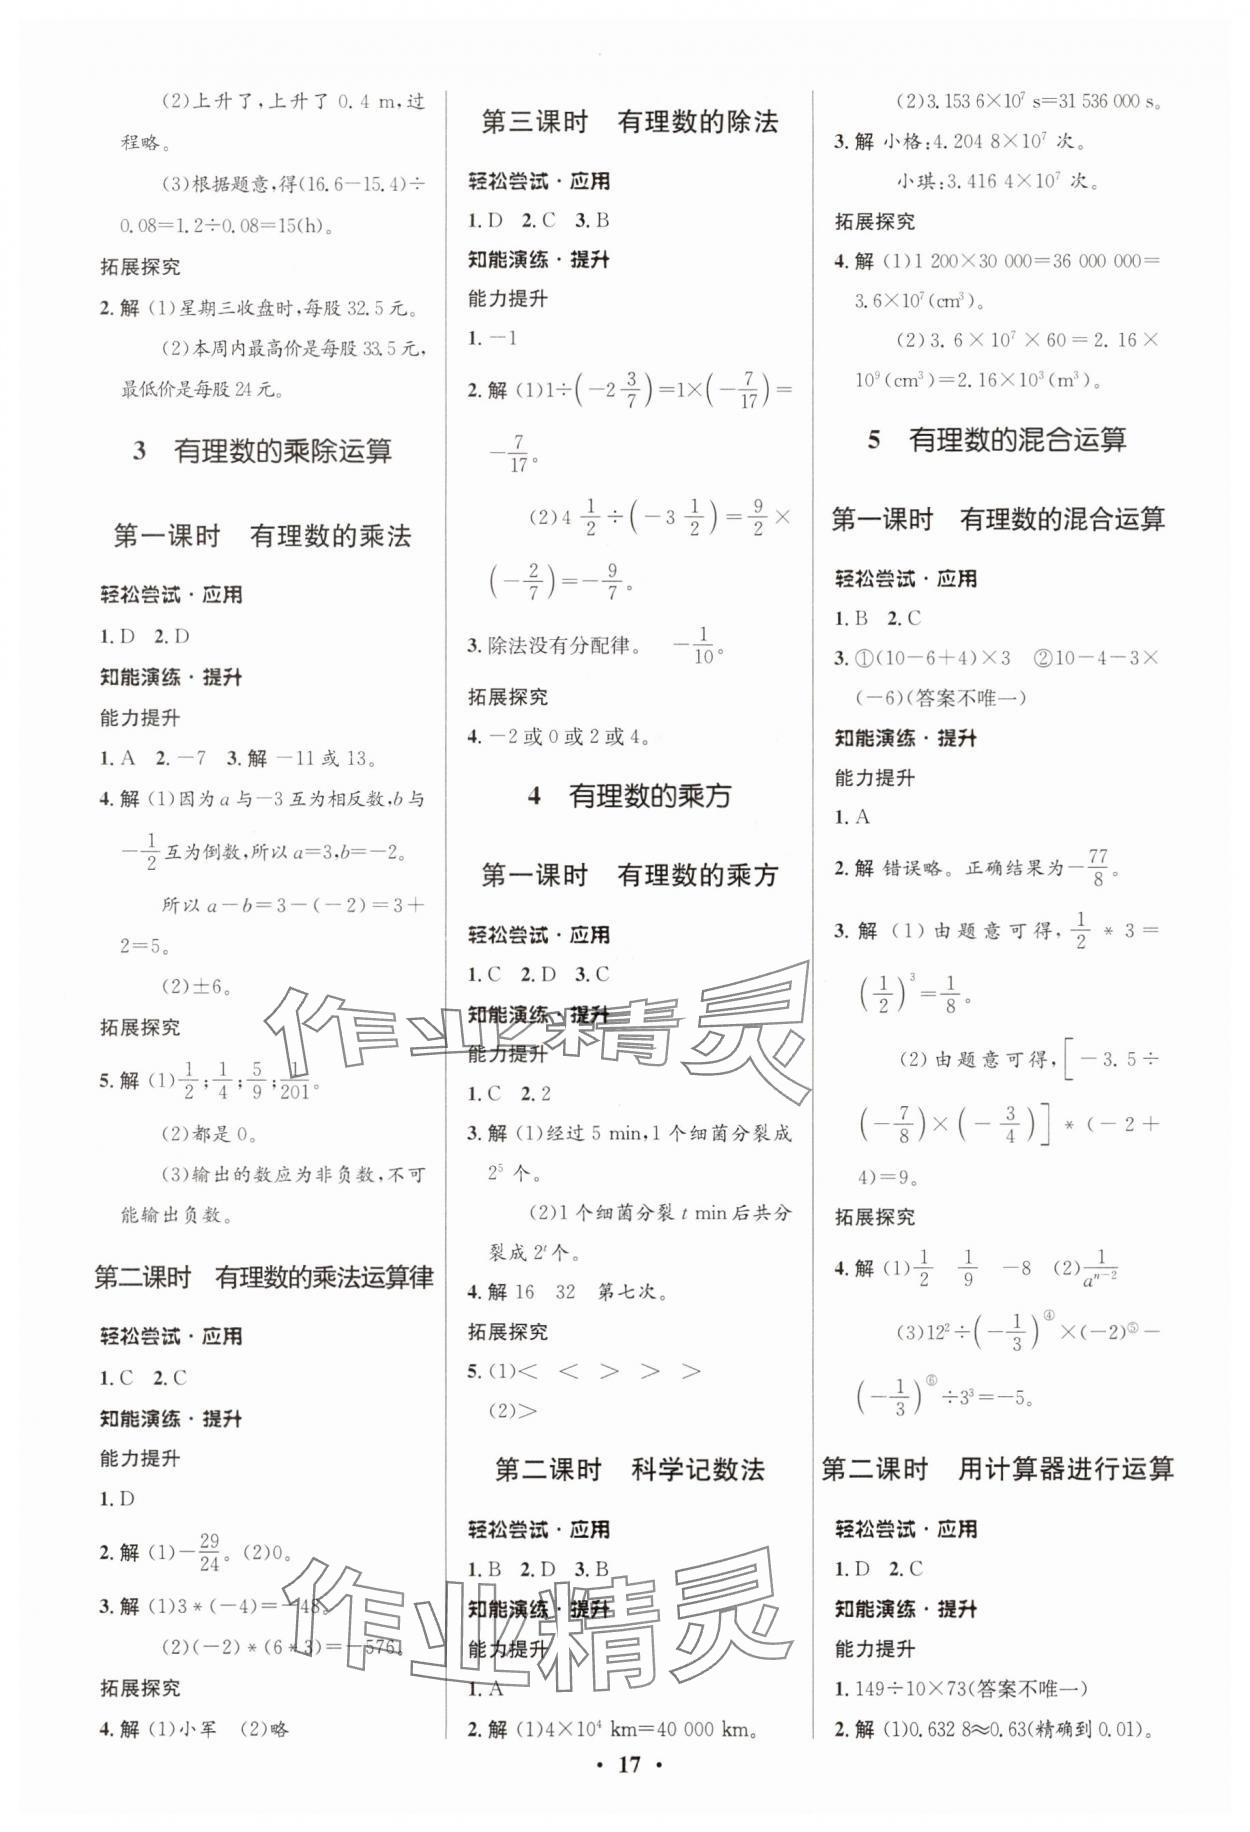 (2)上升了,上升了 0.4 m,过
程略。
(3)根据题意,得(16.6-15.4)÷
0.08=1.2÷0.08=15(h)。
拓展探究
2.解 (1)星期三收盘时,每股 32.5 元。
(2)本周内最高价是每股33.5元,
最低价是每股24元。
3 有理数的乘除运算
第一课时 有理数的乘法
轻松尝试·应用
1.D 2.D
知能演练·提升
能力提升
1.A 2.-7 3.解 -11 或 13。
4.解 (1)因为 a 与-3 互为相反数,b 与
-1/2 互为倒数,所以 a=3,b=-2。
所以 a-b=3-(-2)=3+
2=5。
(2)±6。
拓展探究
5.解 (1)1/2;1/4;5/9;1/201。
(2)都是 0。
(3)输出的数应为非负数,不可
能输出负数。
第二课时 有理数的乘法运算律
轻松尝试·应用
1.C 2.C
知能演练·提升
能力提升
1.D
2.解 (1)-29/24。(2)0。
3.解 (1)3*(-4)=-48。
(2)(-2)*(6*3)=-576。
拓展探究
4.解 (1)小军 (2)略
第三课时 有理数的除法
轻松尝试·应用
1.D 2.C 3.B
知能演练·提升
能力提升
1.-1
2.解 (1)1÷(-2 3/7)=1×(-7/17)=
-7/17。
(2)4 1/2÷(-3 1/2)=9/2×
(-2/7)=-9/7。
3.除法没有分配律。 -1/10。
拓展探究
4.-2 或 0 或 2 或 4。
4 有理数的乘方
第一课时 有理数的乘方
轻松尝试·应用
1.C 2.D 3.C
知能演练·提升
能力提升
1.C 2.2
3.解 (1)经过 5 min,1 个细菌分裂成
2⁵ 个。
(2)1 个细菌分裂 t min 后共分
裂成 2ᵗ 个。
4.解 16 32 第七次。
拓展探究
5.(1)< < > > >
(2)>
第二课时 科学记数法
轻松尝试·应用
1.B 2.D 3.B
知能演练·提升
能力提升
1.A
2.解 (1)4×10⁴ km=40 000 km。
(2)3.153 6×10⁷ s=31 536 000 s。
3.解 小格:4.204 8×10⁷ 次。
小琪:3.416 4×10⁷ 次。
拓展探究
4.解 (1)1 200×30 000=36 000 000=
3.6×10⁷(cm³)。
(2)3.6×10⁷×60=2.16×
10⁹(cm³)=2.16×10³(m³)。
5 有理数的混合运算
第一课时 有理数的混合运算
轻松尝试·应用
1.B 2.C
3.①(10-6+4)×3 ②10-4-3×
(-6)(答案不唯一)
知能演练·提升
能力提升
1.A
2.解 错误略。正确结果为-77/8。
3.解 (1)由题意可得,1/2*3=
(1/2)³=1/8。
(2)由题意可得,[-3.5÷
(-7/8)×(-3/4)]*(-2+
4)=9。
拓展探究
4.解 (1)1/2 1/9 -8 (2)1/aⁿ⁻²
(3)12²÷(-1/3)^④×(-2)^⑤-
(-1/3)^⑥÷3³=-5。
第二课时 用计算器进行运算
轻松尝试·应用
1.D 2.C
知能演练·提升
能力提升
1.149÷10×73(答案不唯一)
2.解 (1)0.632 8≈0.63(精确到 0.01)。
·17·
作业精灵
作业精灵